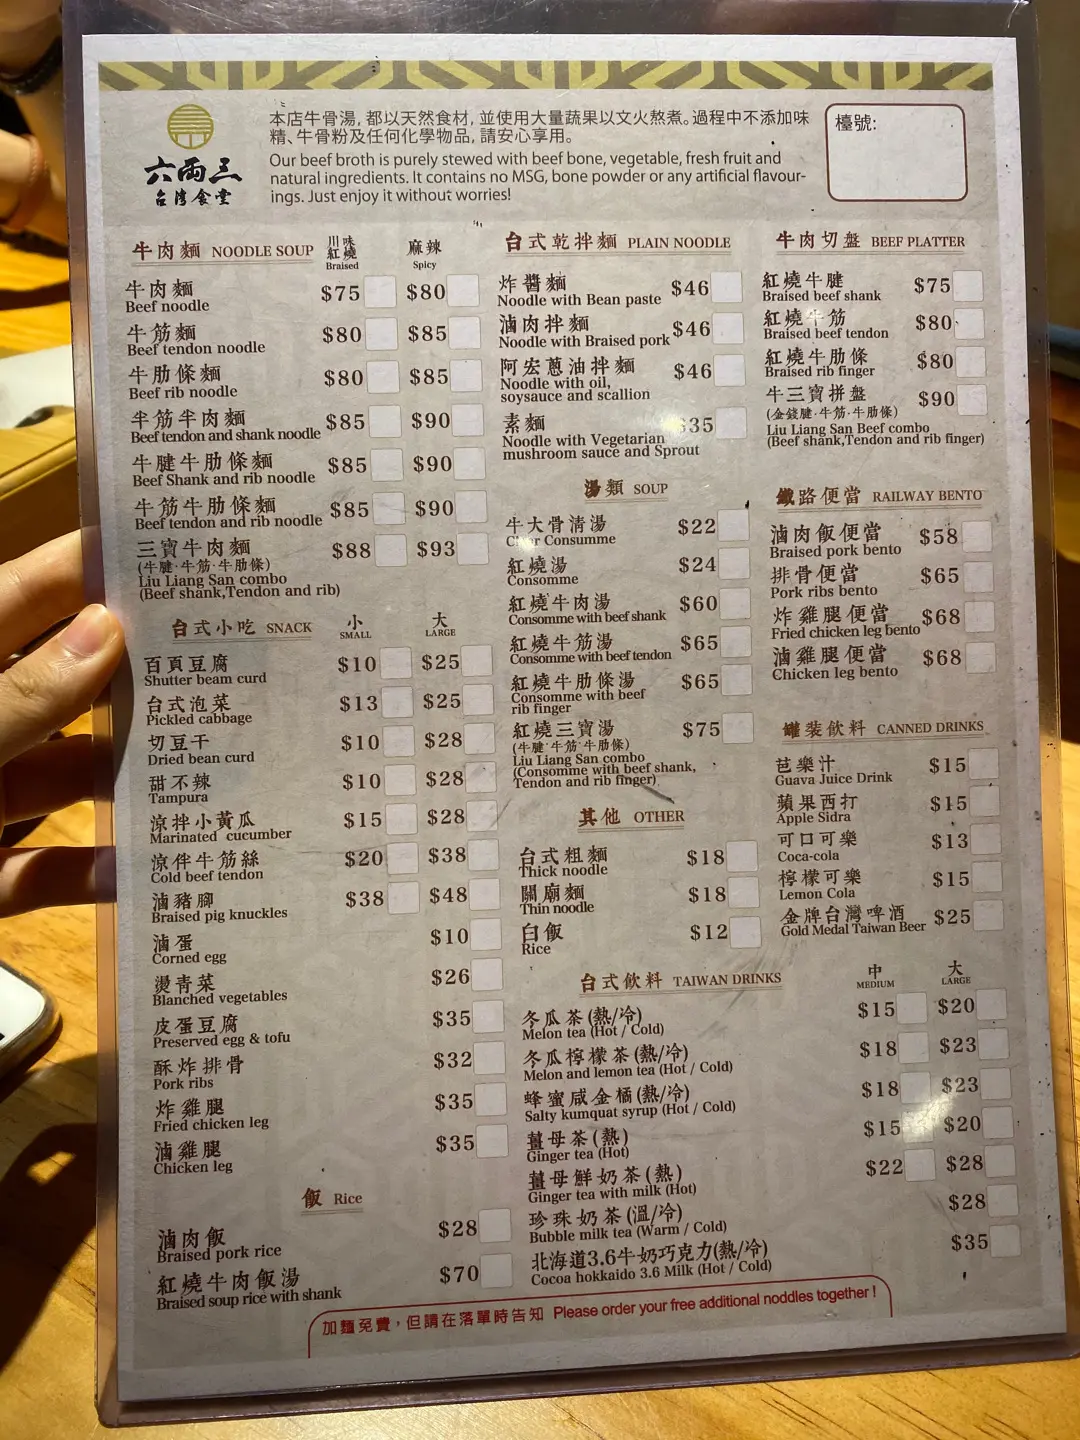 六両三
台灣食堂
本店牛骨湯, 都以天然食材, 並使用大量蔬果以文火熬煮。過程中不添加味
精、牛骨粉及任何化學物品, 請安心享用。
Our beef broth is purely stewed with beef bone, vegetable, fresh fruit and
natural ingredients. It contains no MSG, bone powder or any artificial flavour-
ings. Just enjoy it without worries!
檯號:
牛肉麵 NOODLE SOUP
川味
紅燒
Braised
麻辣
Spicy
牛肉麵 $75 $80
Beef noodle
牛筋麵 $80 $85
Beef tendon noodle
牛肋條麵 $80 $85
Beef rib noodle
半筋半肉麵 $85 $90
Beef tendon and shank noodle
牛腱牛肋條麵 $85 $90
Beef Shank and rib noodle
牛筋牛肋條麵 $85 $90
Beef tendon and rib noodle
三寶牛肉麵 $88 $93
(牛腱·牛筋·牛肋條)
Liu Liang San combo
(Beef shank,Tendon and rib)
台式小吃 SNACK
小
SMALL
大
LARGE
百頁豆腐 $10 $25
Shutter beam curd
台式泡菜 $13 $25
Pickled cabbage
切豆干 $10 $28
Dried bean curd
甜不辣 $10 $28
Tampura
涼拌小黃瓜 $15 $28
Marinated cucumber
涼伴牛筋絲 $20 $38
Cold beef tendon
滷豬腳 $38 $48
Braised pig knuckles
滷蛋 $10
Corned egg
燙青菜 $26
Blanched vegetables
皮蛋豆腐 $35
Preserved egg & tofu
酥炸排骨 $32
Pork ribs
炸雞腿 $35
Fried chicken leg
滷雞腿 $35
Chicken leg
飯 Rice
滷肉飯 $28
Braised pork rice
紅燒牛肉飯湯 $70
Braised soup rice with shank
台式乾拌麵 PLAIN NOODLE
炸醬麵 $46
Noodle with Bean paste
滷肉拌麵 $46
Noodle with Braised pork
阿宏蔥油拌麵 $46
Noodle with oil,
soysauce and scallion
素麵 $35
Noodle with Vegetarian
mushroom sauce and Sprout
湯類 SOUP
牛大骨清湯 $22
Clear Consumme
紅燒湯 $24
Consomme
紅燒牛肉湯 $60
Consomme with beef shank
紅燒牛筋湯 $65
Consomme with beef tendon
紅燒牛肋條湯 $65
Consomme with beef
rib finger
紅燒三寶湯 $75
(牛腱·牛筋·牛肋條)
Liu Liang San combo
(Consomme with beef shank,
Tendon and rib finger)
其他 OTHER
台式粗麵 $18
Thick noodle
關廟麵 $18
Thin noodle
白飯 $12
Rice
牛肉切盤 BEEF PLATTER
紅燒牛腱 $75
Braised beef shank
紅燒牛筋 $80
Braised beef tendon
紅燒牛肋條 $80
Braised rib finger
牛三寶拼盤 $90
(金錢腱·牛筋·牛肋條)
Liu Liang San Beef combo
(Beef shank,Tendon and rib finger)
鐵路便當 RAILWAY BENTO
滷肉飯便當 $58
Braised pork bento
排骨便當 $65
Pork ribs bento
炸雞腿便當 $68
Fried chicken leg bento
滷雞腿便當 $68
Chicken leg bento
罐裝飲料 CANNED DRINKS
芭樂汁 $15
Guava Juice Drink
蘋果西打 $15
Apple Sidra
可口可樂 $13
Coca-cola
檸檬可樂 $15
Lemon Cola
金牌台灣啤酒 $25
Gold Medal Taiwan Beer
台式飲料 TAIWAN DRINKS
中
MEDIUM
大
LARGE
冬瓜茶(熱/冷) $15 $20
Melon tea (Hot / Cold)
冬瓜檸檬茶(熱/冷) $18 $23
Melon and lemon tea (Hot / Cold)
蜂蜜咸金橘(熱/冷) $18 $23
Salty kumquat syrup (Hot / Cold)
薑母茶(熱) $15 $20
Ginger tea (Hot)
薑母鮮奶茶(熱) $22 $28
Ginger tea with milk (Hot)
珍珠奶茶(溫/冷) $28
Bubble milk tea (Warm / Cold)
北海道3.6牛奶巧克力(熱/冷) $35
Cocoa hokkaido 3.6 Milk (Hot / Cold)
加麵免費，但請在落單時告知 Please order your free additional noddles together !